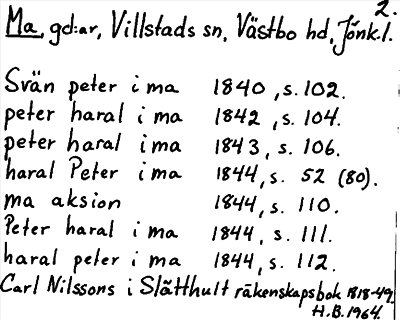 2.
Ma, gd:ar, Villstads sn, Västbo hd, Jönk.l.
Svän peter i ma 1840, s. 102.
peter haral i ma 1842, s. 104.
peter haral i ma 1843, s. 106.
haral Peter i ma 1844, s. 52 (80).
ma aksion 1844, s. 110.
Peter haral i ma 1844, s. 111.
haral peter i ma 1844, s. 112.
Carl Nilssons i Slätthult räkenskapsbok 1818-49.
H.B. 1964.